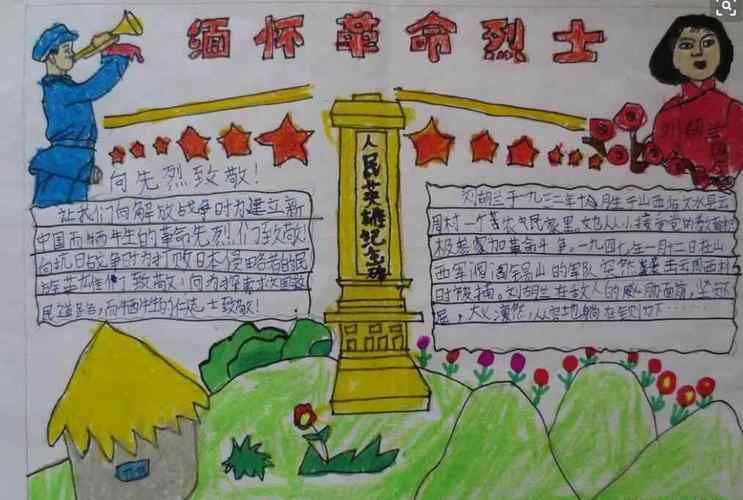 缅怀革命烈士
向先烈致敬！
人民英雄纪念碑
刘胡兰
让我们向解放战争时为建立新
中国而牺牲的革命先烈们致敬！
向抗日战争时为打败日本侵略者的民
族英雄们致敬！向为
民 而牺牲的仁志士致敬！
刘胡兰于一九三二年十月生于山西省文水县云
周村一个 农民家里。她从小接受党的教育
积 参加革命斗争。一九四七年一月十二日在山
西军阀阎锡山的军队突然袭击云周西村
时被捕。刘胡兰在敌人的威胁面前，坚
屈，大义凛然，从容地躺在铡刀下……